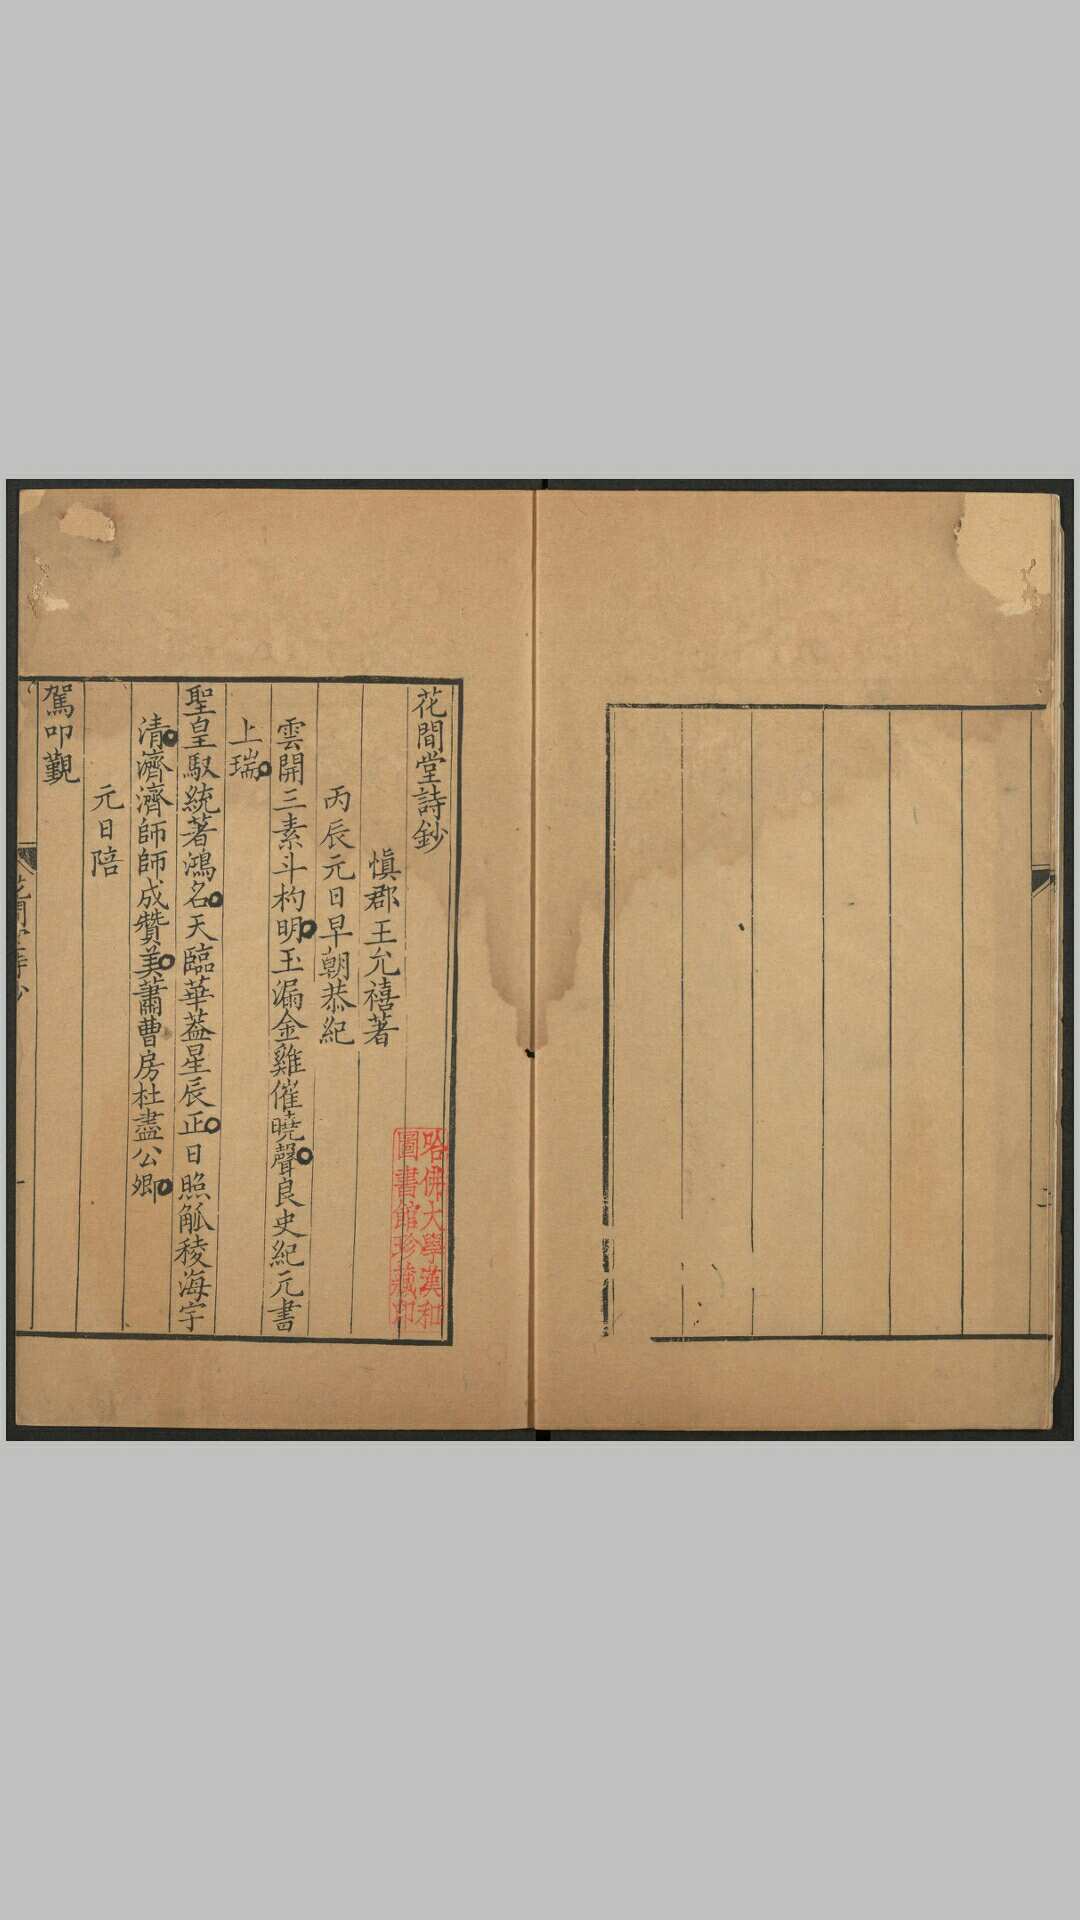 花間堂詩鈔
慎郡王允禧著
丙辰元日早朝恭紀
雲開三素斗杓明玉漏金雞催曉聲良史紀元書
上瑞
聖皇馭統著鴻名天臨華葢星辰正日照觚稜海宇
清濟濟師師成贊美蕭曹房杜盡公卿
元日陪
駕叩覲
哈佛大學漢和
圖書館珍藏印